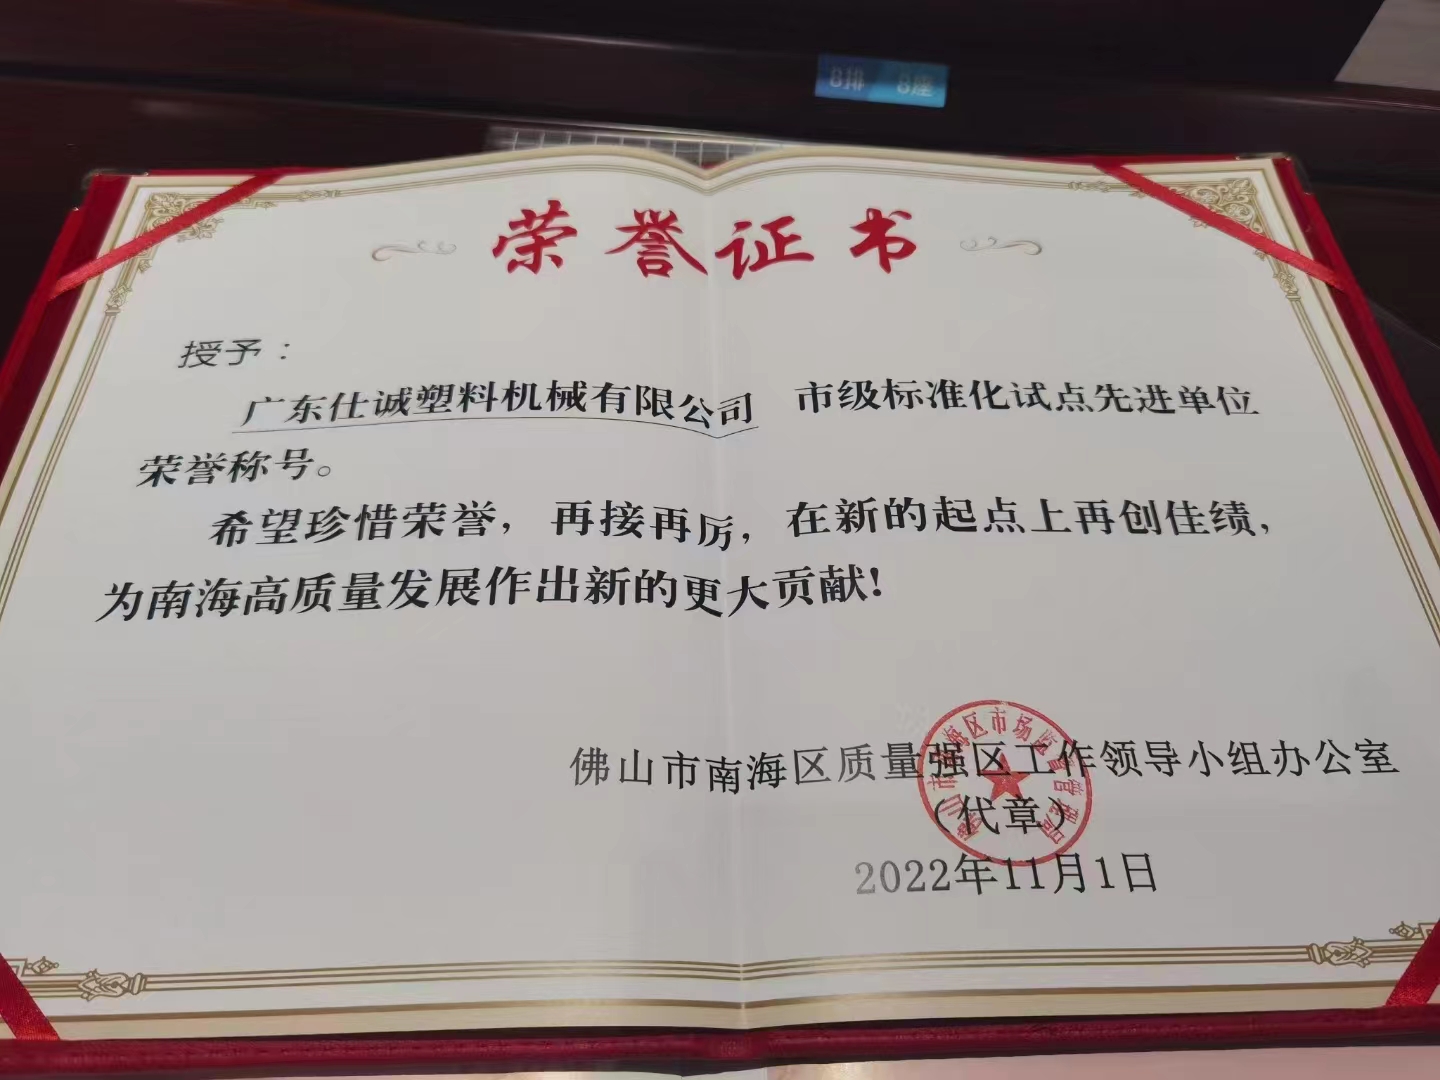 8排 8座
荣誉证书
授予：
广东仕诚塑料机械有限公司 市级标准化试点先进单位
荣誉称号。
希望珍惜荣誉，再接再厉，在新的起点上再创佳绩，
为南海高质量发展作出新的更大贡献！
佛山市南海区质量强区工作领导小组办公室
（代章）
2022年11月1日
佛山市南海区市场监督管理局